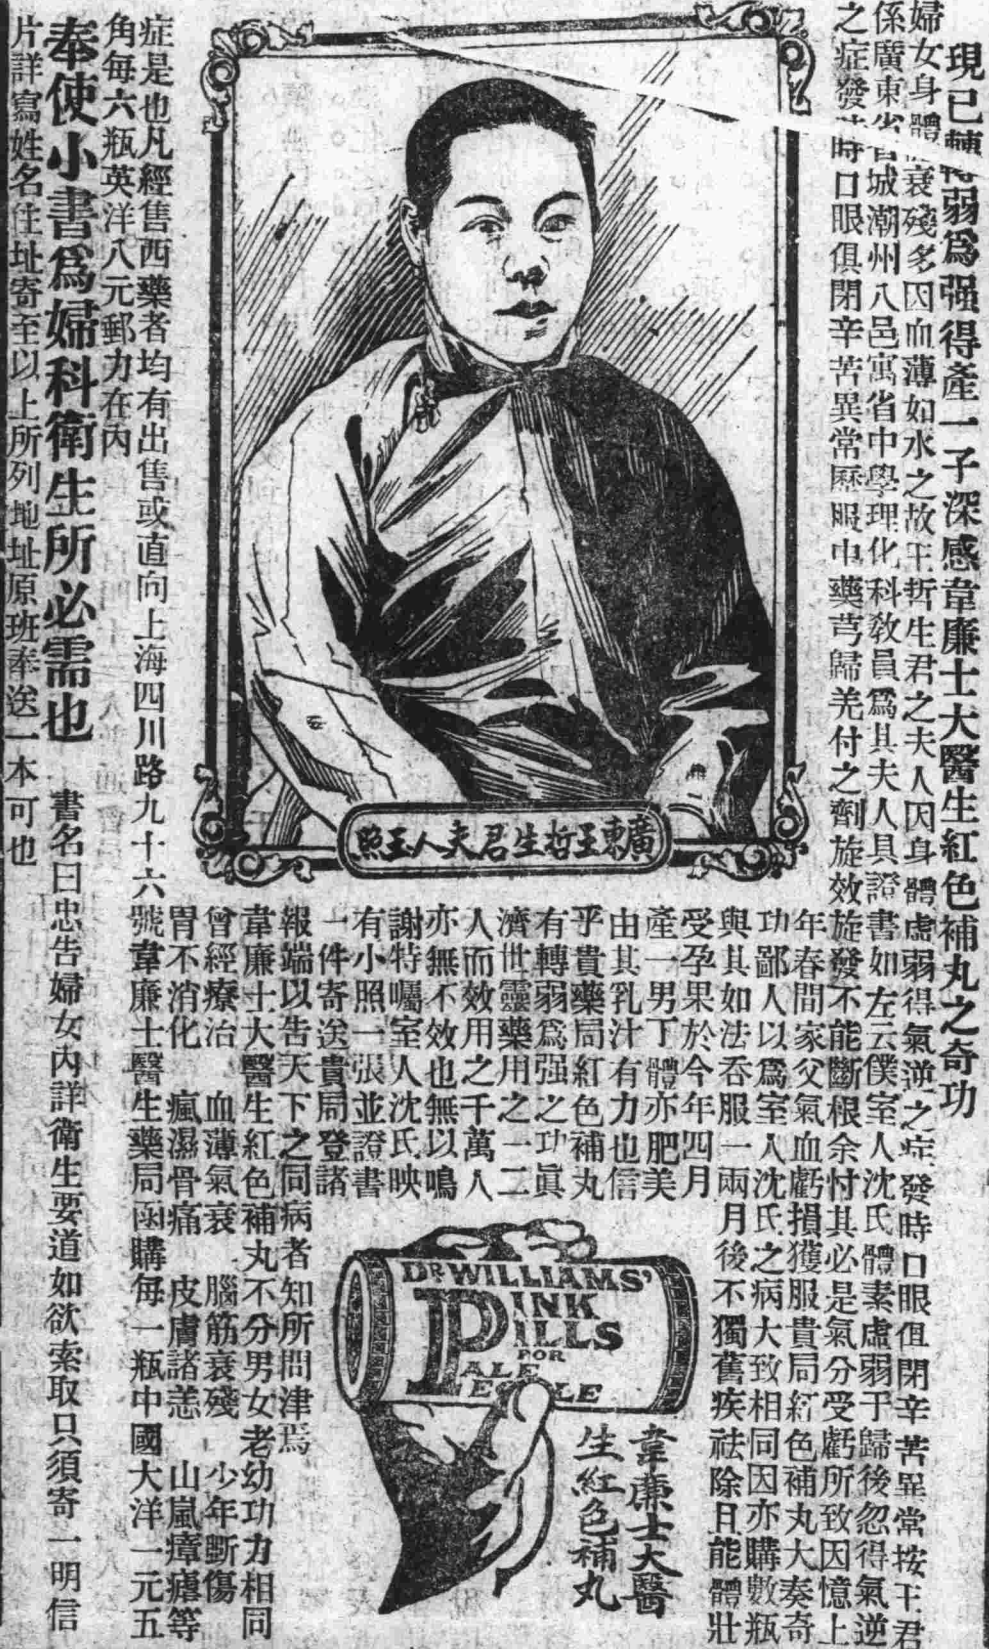 現已轉弱爲强得產一子深感韋廉士大醫生紅色補丸之奇功
婦女身體衰殘多因血薄如水之故王哲生君之夫人因身體虛弱得氣逆之症發時口眼俱閉辛苦異常按王君
係廣東省省城潮州八邑寓省中學理化科敎員爲其夫人具證書如左云僕室人沈氏體素虛弱于歸後忽得氣逆
之症發時口眼俱閉辛苦異常歷服中藥芎歸羌付之劑旋效旋發不能斷根余忖其必是氣分受虧所致因憶上
年春間家父氣血虧損獲服貴局紅色補丸大奏奇
功鄙人以爲室人沈氏之病大致相同因亦購數瓶
與其如法吞服一兩月後不獨舊疾祛除且能體壯
受孕果於今年四月
產一男丁體亦肥美
由其乳汁有力也信
乎貴藥局紅色補丸
有轉弱爲强之功眞
濟世靈藥用之一二
人而效用之千萬人
亦無不效也無以鳴
謝特囑室人沈氏映
有小照一張並證書
一件寄送貴局登諸
報端以告天下之同病者知所問津焉
韋廉士大醫生紅色補丸不分男女老幼功力相同
曾經療治 血薄氣衰 腦筋衰殘 少年斲傷
胃不消化 瘋濕骨痛 皮膚諸恙 山嵐瘴瘧等
症是也凡經售西藥者均有出售或直向上海四川路九十六號韋廉士醫生藥局函購每一瓶中國大洋一元五
角每六瓶英洋八元郵力在內
奉使小書爲婦科衛生所必需也 書名曰忠告婦女內詳衛生要道如欲索取只須寄一明信
片詳寫姓名住址寄至以上所列地址原班奉送一本可也
廣東王哲生君夫人玉照
DR WILLIAMS'
PINK
PILLS
FOR
PALE
PEOPLE
韋廉士大醫
生紅色補丸